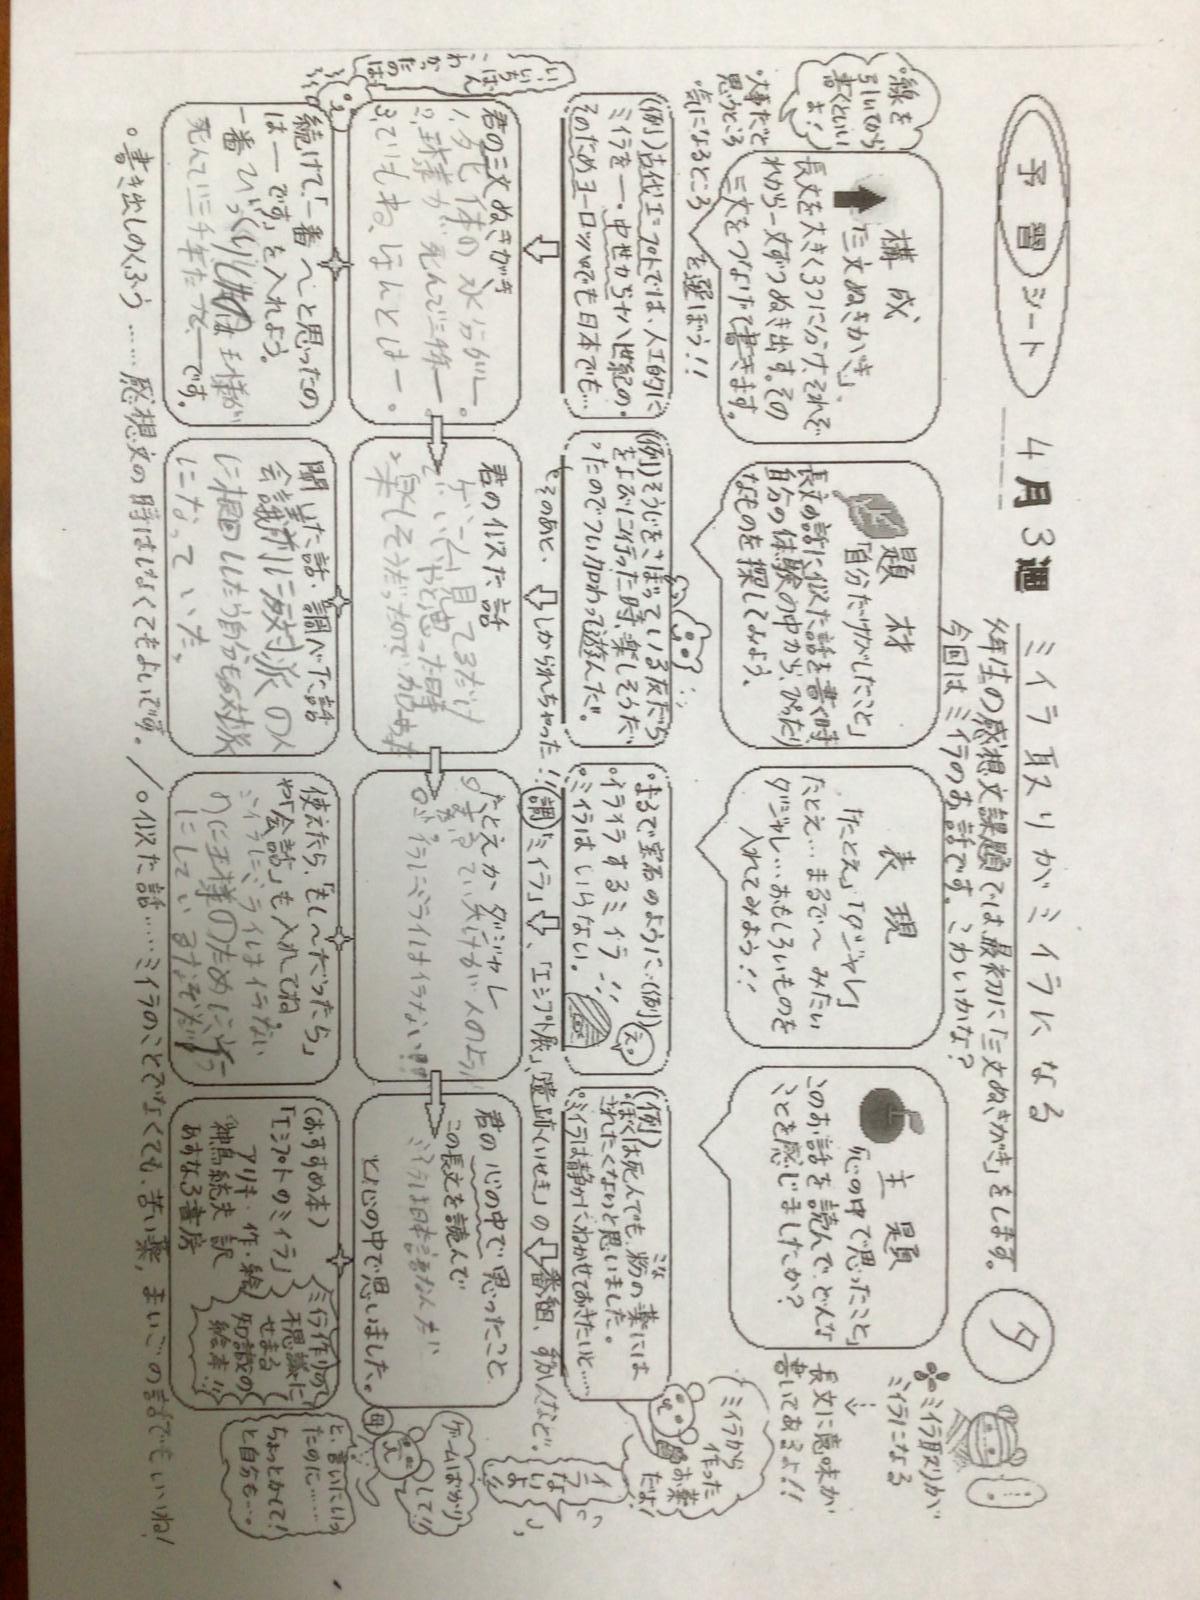 予習シート
4月3週
ミイラ取りがミイラになる
夕
今回はミイラのお話です。こわいかな?
ミイラ取りが
ミイラになる
↓
長文に意味が
書いてあるよ!!
構成
「三文ぬきがき」
長文を大きく3つに分け、それぞ
れから一文ずつぬき出す。その
三文をつなげて書きます。
・線を
引いてから
書くといい
よ!
・大事だと
思うところ
・気になるところ
を選ぼう!!
題材
「自分だけがしたこと」
長文の話に似た話を書く時、
自分の体験の中から、ぴったり
なものを探してみよう。
表現
「たとえ」「ダジャレ」
たとえ…まるで〜みたい
ダジャレ…おもしろいものを
入れてみよう!!
主題
「心の中で思ったこと」
このお話を読んで、どんな
ことを感じましたか?
(例)古代エジプトでは、人工的に
ミイラを―。中世から十八世紀の・
そのためヨーロッパでも日本でも…
(例)そうじをさぼっている友だち
をよびに行った時、楽しそうだ
ったのでつい加わって遊んだ。
そのあと、しかられちゃった!!
・まるで宝石のように…(例)
・イライラするミイラ…
・ミイラはいらない。
え。
(例)
・ぼくは死んでも、粉の薬には
こな
されたくないと思いました。
・ミイラは静かにねかせておきたいと……
ミイラから
作った
お薬
だよ!
調「ミイラ」、「エジプト展」、「遺跡(いせき)」の番組、ずかんなど。
君の三文ぬきがき
1、死体の水分が―。
2、王様が死んで―
3、でもね、ほんとは―。
君の似た話
ゲームを見てるだけ
でいいやと思った時
楽しそうだったので加わった
たとえかダジャレ
ミイラはイラない!!
君の心の中で思ったこと
この長文を読んで
ミイラは日本語なんだ
と心の中で思いました。
ゲームばかり
して!!
母
続けて、「一番〜と思ったの
は――です」を入れよう。
一番びっくりしたのは王様が
死んで三千年たって―です。
聞いた話・調べた話
会議前に反対派の人
に根回ししたら自分も反対派
になっていた。
使えたら、「もし〜だったら」
や「会話」も入れてね。
(おすすめ本)
「エジプトのミイラ」
アリキ・作・絵
神鳥統夫 訳
あすなろ書房
ミイラ作りの
不思議に
せまる
知識の
絵本!!
と、言いにいっ
たのに……
ちょっとかして!
と自分も…。
・書き出しのくふう……感想文の時はしなくてもよいです。
・似た話……ミイラのことでなくても、苦い薬、まいごの話でもいいね!